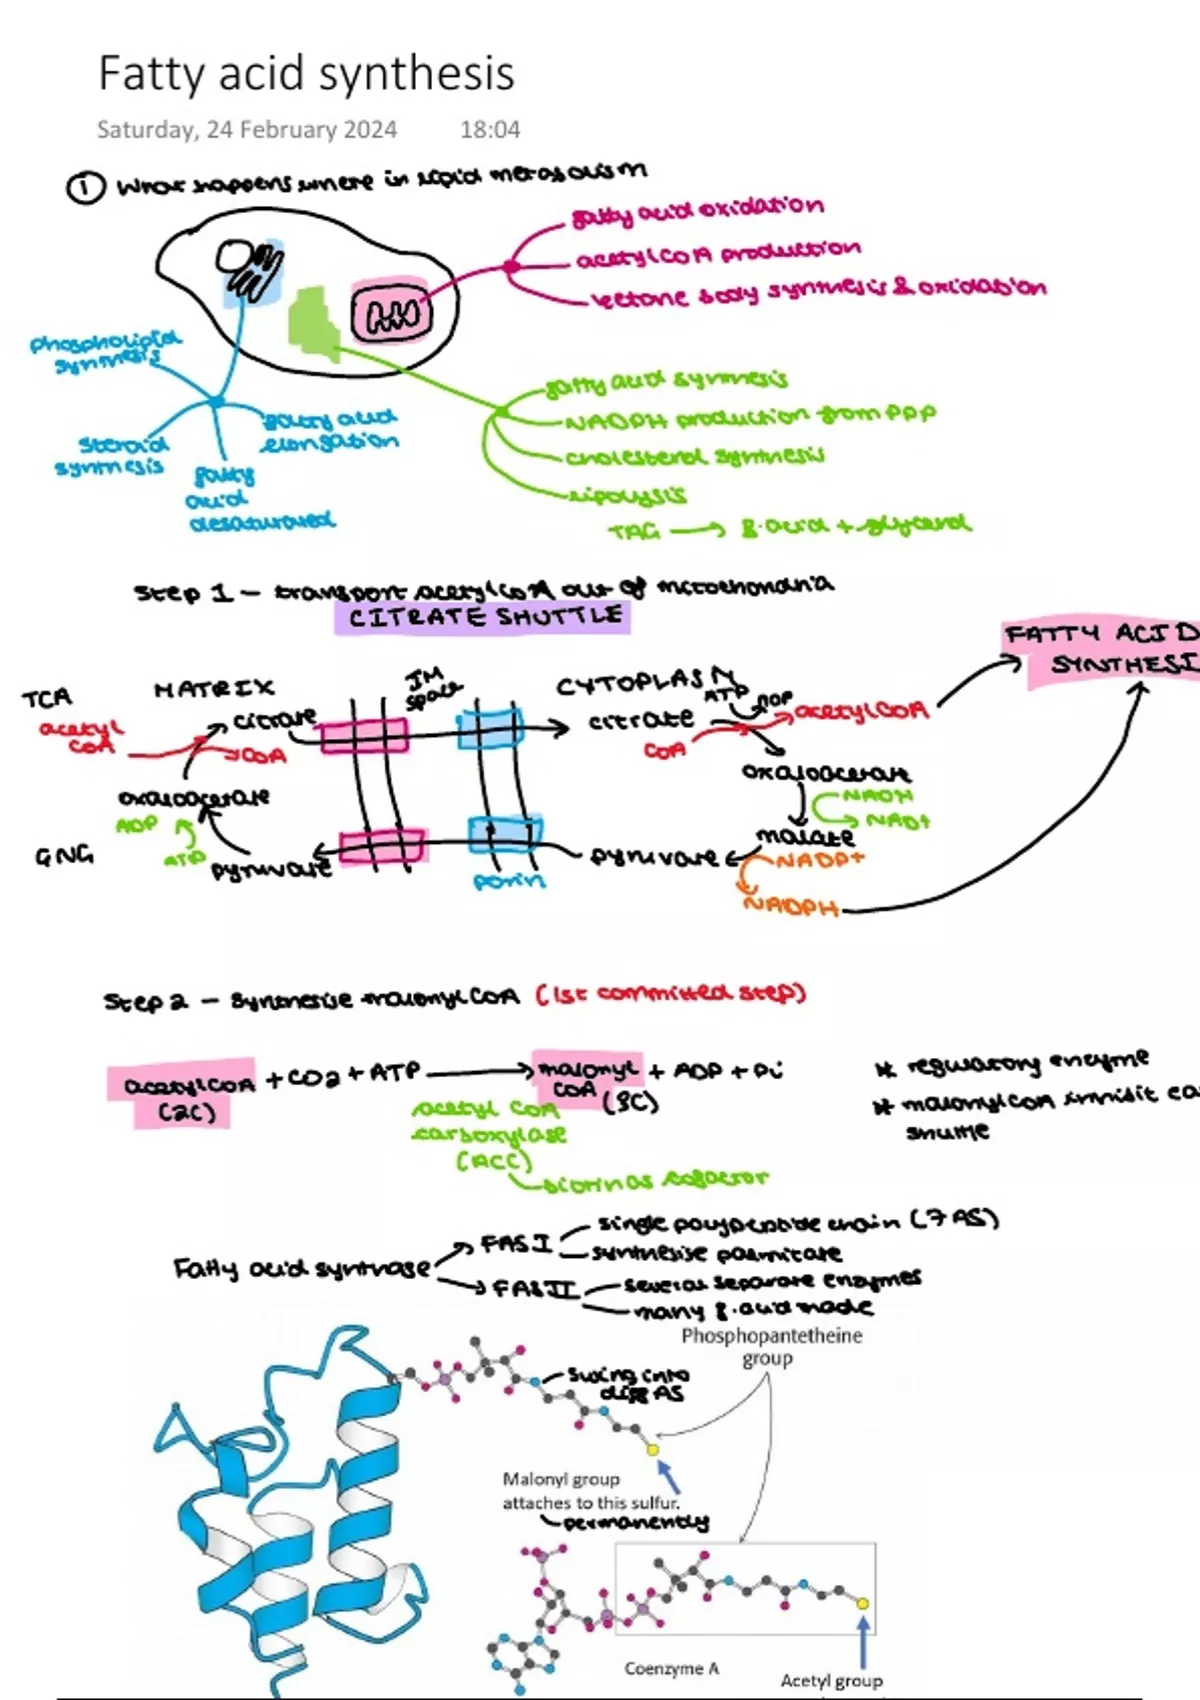 Fatty acid synthesis
Saturday, 24 February 2024 18:04
① What happens where in lipid metabolism
fatty acid oxidation
acetyl CoA production
ketone body synthesis & oxidation
phospholipid
synthesis
steroid
synthesis
fatty acid
elongation
fatty
acid
desaturated
fatty acid synthesis
NADPH production from PPP
cholesterol synthesis
lipolysis
TAG → f.acid + glycerol
Step 1 – transport acetyl CoA out of mitochondria
CITRATE SHUTTLE
FATTY ACID
SYNTHESI
TCA
MATRIX
IM
space
CYTOPLASM
acetyl
CoA
citrate
CoA
citrate
ATP
ADP
acetyl CoA
CoA
oxaloacetate
oxaloacetate
ADP
ATP
NADH
NAD+
malate
GNG
pyruvate
porin
pyruvate
NADP+
NADPH
Step 2 – synthesise malonyl CoA (1st committed step)
acetyl CoA + CO2 + ATP → malonyl + ADP + Pi
(2C)
CoA (3C)
acetyl CoA
carboxylase
(ACC)
biotin as cofactor
* regulatory enzyme
* malonyl CoA inhibit ca
shuttle
Fatty acid synthase
FAS I
single polypeptide chain (7 AS)
synthesise palmitate
FAS II
several separate enzymes
many f.acid made
Phosphopantetheine
group
swing into
diff AS
Malonyl group
attaches to this sulfur.
permanently
Coenzyme A
Acetyl group